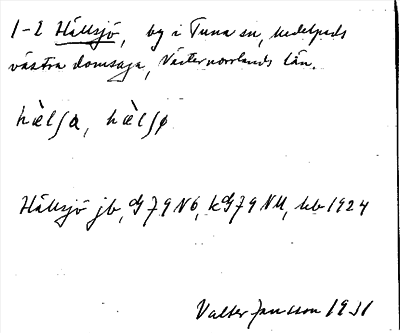 1-2 Hällsjö, by i Tuna sn, Medelpads
västra domsaga, Västernorrlands län.
hὲlʃa, hὲlʃø
Hällsjö jb, G79 NÖ, kG79 NU, hb 1924
Valter Jansson 1931